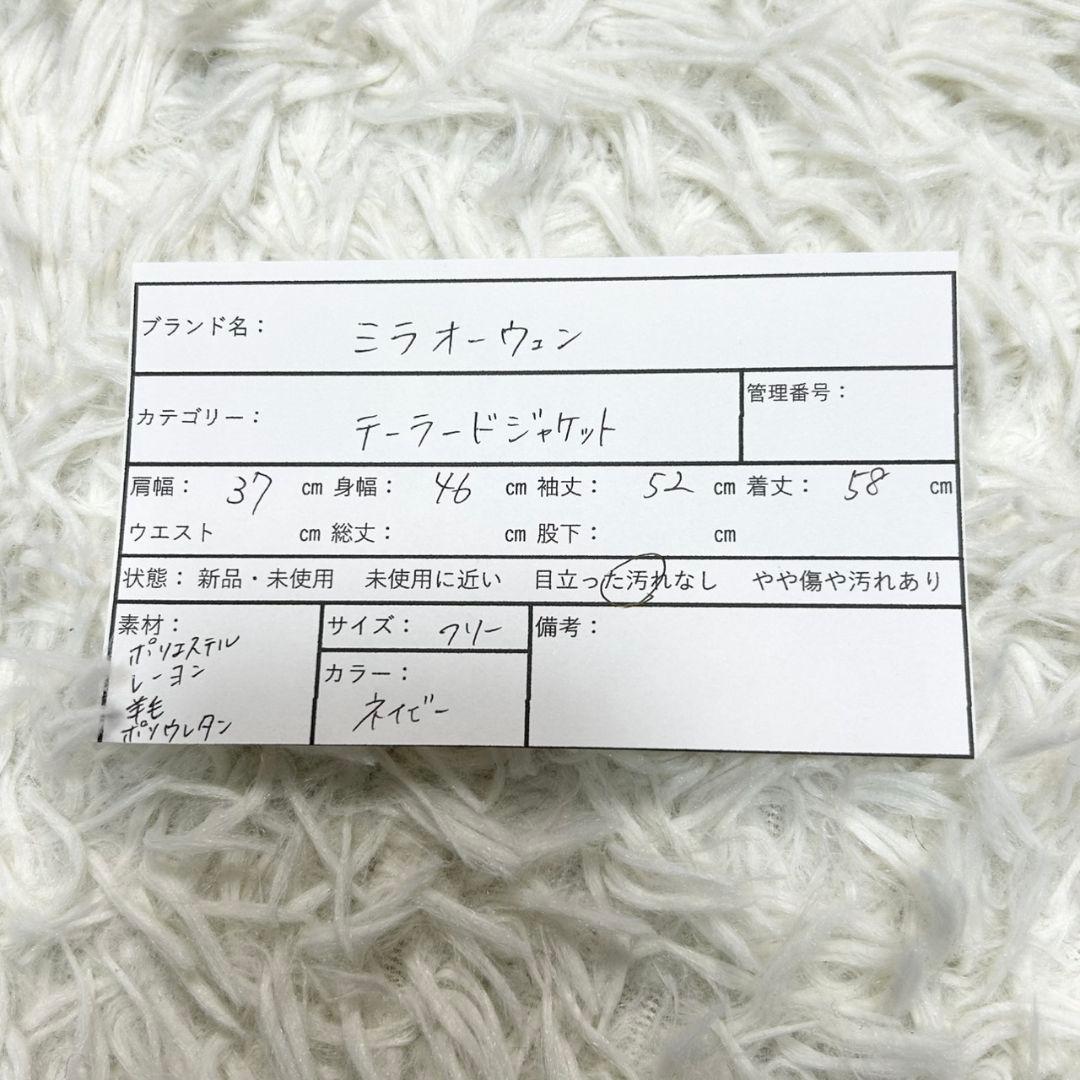 ブランド名： ミラオーウェン
カテゴリー： テーラードジャケット 管理番号：
肩幅： 37 cm 身幅： 46 cm 袖丈： 52 cm 着丈： 58 cm
ウエスト cm 総丈： cm 股下： cm
状態： 新品・未使用 未使用に近い 目立った汚れなし やや傷や汚れあり
素材： サイズ： フリー 備考：
ポリエステル
レーヨン カラー：
羊毛 ネイビー
ポリウレタン